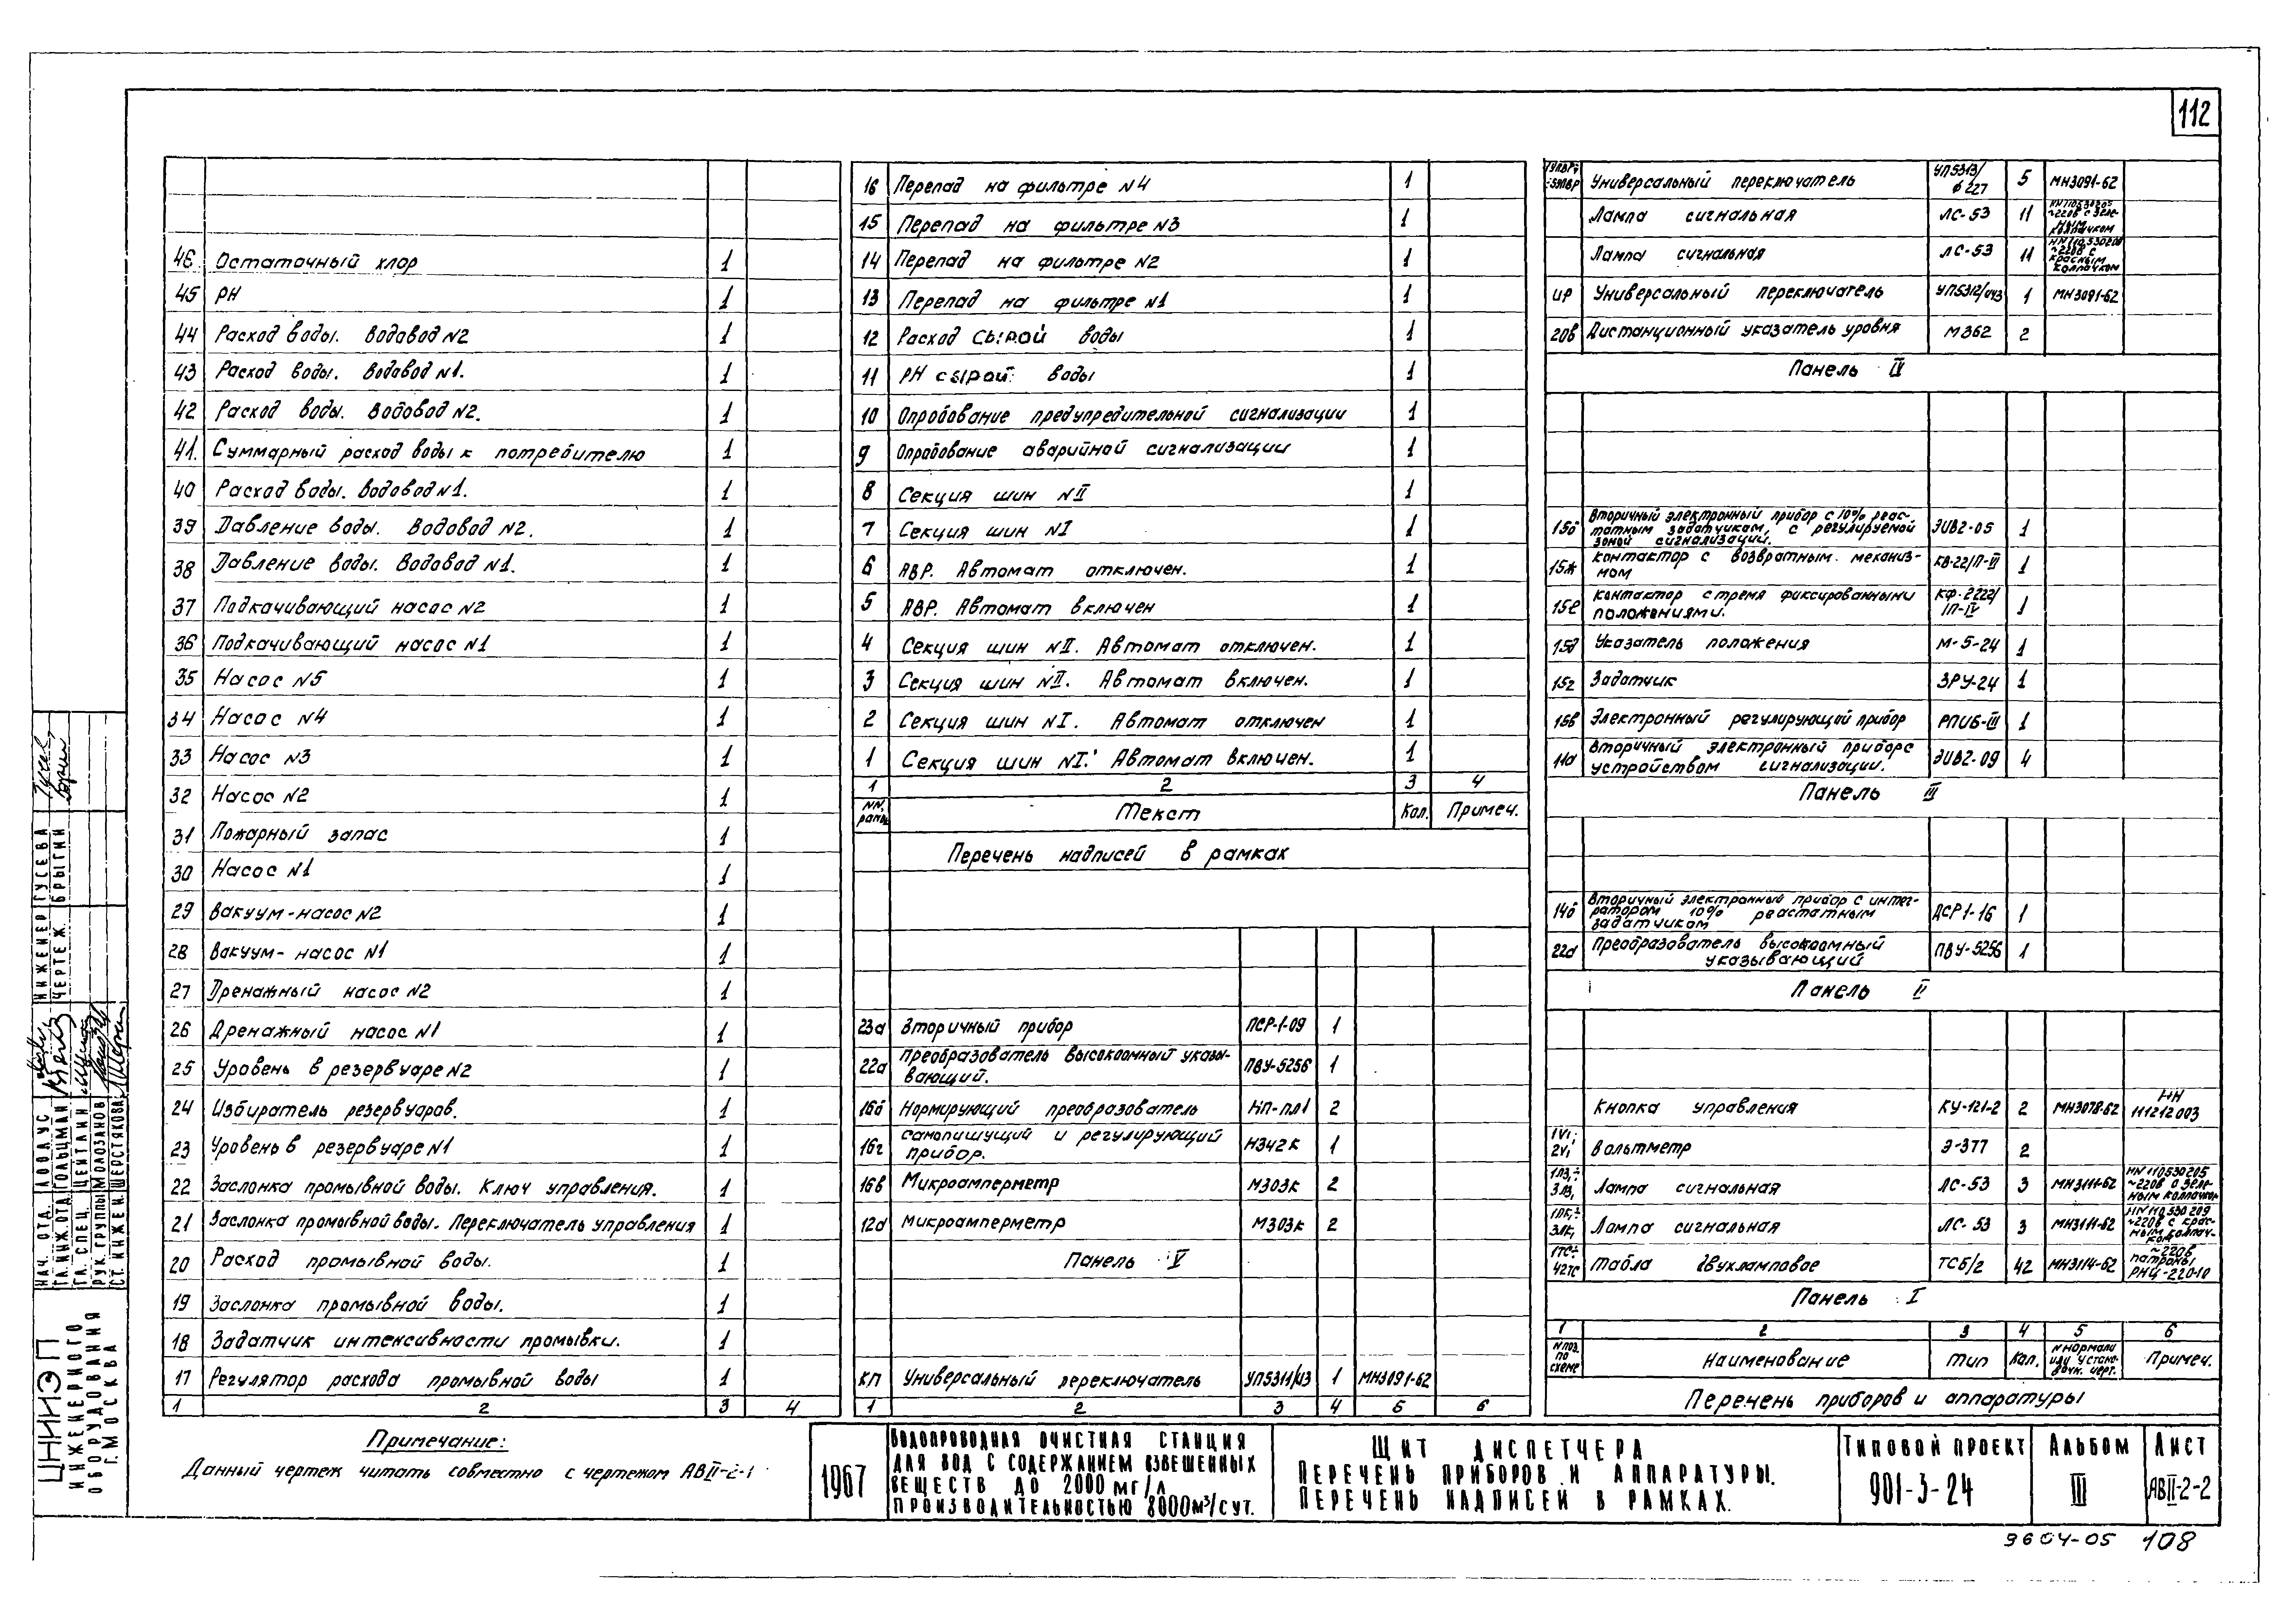 112
46 Остаточный хлор 1
45 PH 1
44 Расход воды. Водовод N2 1
43 Расход воды. Водовод N1. 1
42 Расход воды. Водовод N2. 1
41. Суммарный расход воды к потребителю 1
40 Расход воды. Водовод N1. 1
39 Давление воды. Водовод N2. 1
38 Давление воды. Водовод N1. 1
37 Подкачивающий насос N2 1
36 Подкачивающий насос N1 1
35 Насос N5 1
34 Насос N4 1
33 Насос N3 1
32 Насос N2 1
31 Пожарный запас 1
30 Насос N1 1
29 Вакуум-насос N2 1
28 Вакуум- насос N1 1
27 Дренажный насос N2 1
26 Дренажный насос N1 1
25 Уровень в резервуаре N2 1
24 Избиратель резервуаров. 1
23 Уровень в резервуаре N1 1
22 Заслонка промывной воды. Ключ управления. 1
21 Заслонка промывной воды. Переключатель управления 1
20 Расход промывной воды. 1
19 Заслонка промывной воды. 1
18 Задатчик интенсивности промывки. 1
17 Регулятор расхода промывной воды 1
1 2 3 4
16 Перепад на фильтре N4 1
15 Перепад на фильтре N3 1
14 Перепад на фильтре N2 1
13 Перепад на фильтре N1 1
12 Расход сырой воды 1
11 PH сырой воды 1
10 Опробование предупредительной сигнализации 1
9 Опробование аварийной сигнализации 1
8 Секция шин NII 1
7 Секция шин NI 1
6 АВР. Автомат отключен. 1
5 АВР. Автомат включен 1
4 Секция шин NII. Автомат отключен. 1
3 Секция шин NII. Автомат включен. 1
2 Секция шин NI. Автомат отключен 1
1 Секция шин NI. Автомат включен. 1
1 2 3 4
NN рамк. Текст Кол. Примеч.
Перечень надписей в рамках
23а Вторичный прибор ПСР-1-09 1
22а Преобразователь высокоомный указы-
вающий. ПВУ-5256 1
16б Нормирующий преобразователь НП-пл1 2
16г Самопишущий и регулирующий
прибор. Н342К 1
16в Микроамперметр М303К 2
12а Микроамперметр М303К 2
Панель V
КП Универсальный переключатель УП5311/И3 1 МН3091-62
1 2 3 4 5 6
Универсальный переключатель УП5313/
ф227 5 МН3091-62
Лампа сигнальная ЛС-53 11
~220в с зеле-
ным
колпачком
Лампа сигнальная ЛС-53 11
~220в с
красным
колпачком
ИР Универсальный переключатель УП5312/И43 1 МН3091-62
20в Дистанционный указатель уровня М362 2
Панель IV
15б Вторичный электронный прибор с 10% реос-
татным задатчикам, с регулируемой
зоной сигнализации. ЭИВ2-05 1
15ж Контактор с возвратным механиз-
мом КВ-22/П-VI 1
15е Контактор с тремя фиксированными
положениями. КФ-2222/
1П-IV 1
15д Указатель положения М-5-24 1
15г Задатчик ЗРУ-24 1
Электронный регулирующий прибор РПИБ-III 1
11а Вторичный электронный прибор с
устройством сигнализации. ЭИВ2-09 4
Панель III
14б Вторичный электронный прибор с интег-
ратором 10% реостатным
задатчиком ДСР1-16 1
22а Преобразователь высокоомный
указывающий ПВУ-5256 1
Панель II
Кнопка управления КУ-121-2 2 МН3078-62 НН
111212003
1V1;
2V1 Вольтметр Э-377 2
1ЛЗ,÷
3ЛЗ, Лампа сигнальная ЛС-53 3 МН3111-62 НН110530205
~220в с зеле-
ным колпачком
1ЛК,÷
3ЛК, Лампа сигнальная ЛС-53 3 МН3111-62 НН110530209
~220в с крас-
ным колпач-
ком
1ТС÷
42ТС Табло двухламповое ТСб/2 42 МН3114-62 ~220в
патроны
РНЦ-220-10
Панель I
1 2 3 4 5 6
N поз.
по
схеме Наименование Тип Кол. N нормали
или устано-
вочн. черт. Примеч.
Перечень приборов и аппаратуры
Примечание:
Данный чертеж читать совместно с чертежом АВII-2-1
1967
Водопроводная очистная станция
для вод с содержанием взвешенных
веществ до 2000 мг/л
производительностью 8000м³/сут.
Щит диспетчера
Перечень приборов и аппаратуры.
Перечень надписей в рамках.
Типовой проект
901-3-24
Альбом
III
Лист
АВII-2-2
9604-05 108
ЦНИИЭП
инженерного
оборудования
г. Москва
Нач. отд.
Гл. инж. отд. Гольцман
Гл. спец. Цейтлин
Рук. группы Молозанов
Ст. инжен. Шерстякова
Инженер Гусева
Чертеж. Брыгин